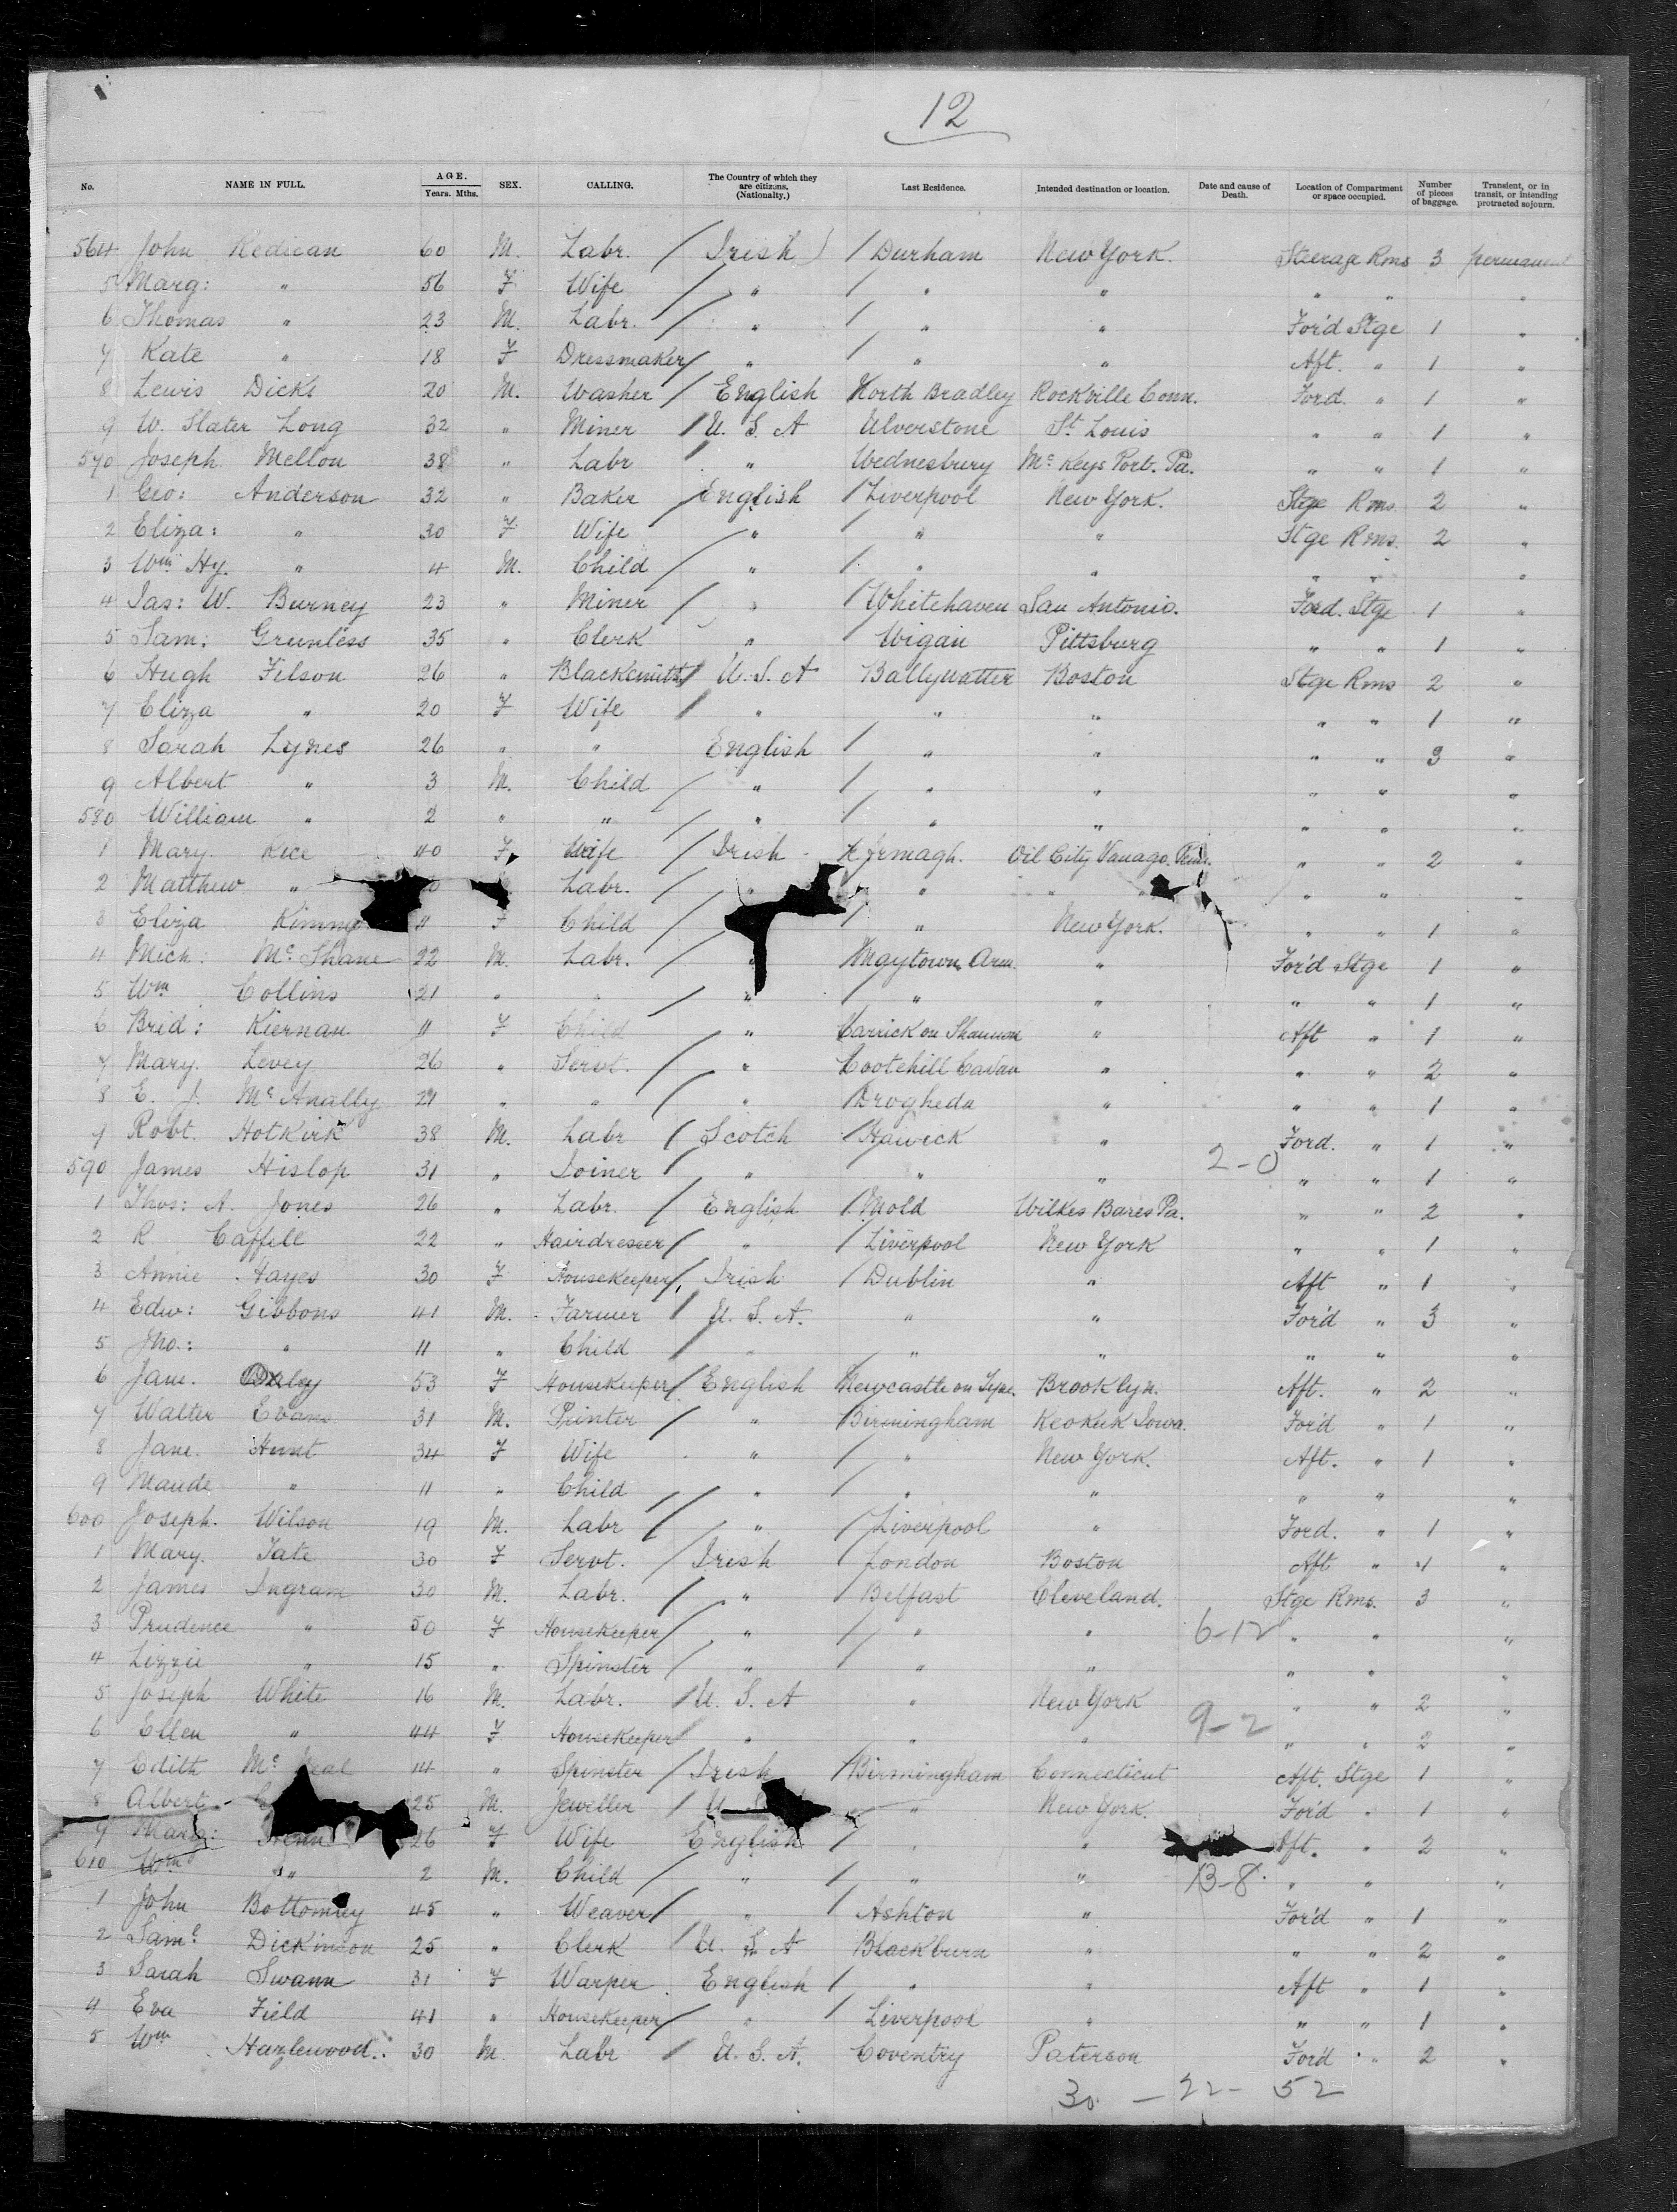 12
No. NAME IN FULL. AGE. Years. Mths. SEX. CALLING. The Country of which they are citizens. (Nationality.) Last Residence. Intended destination or location. Date and cause of Death. Location of Compartment or space occupied. Number of pieces of baggage. Transient, or in transit, or intending protracted sojourn.
564 John Redican 60 M. Labr. / Irish ) / Durham New York. Steerage Rms 3 permanent
5 Marg: " 56 F Wife / " / " " " " "
6 Thomas " 23 M. Labr. / " / " " For'd Stge 1 "
7 Kate " 18 F Dressmaker / " / " " Aft. " 1 "
8 Lewis Dicks 20 M. Washer / English North Bradley Rockville Conn. Ford. " 1 "
9 W. Slater Long 32 " Miner / U. S. A Ulverstone St. Louis " " 1 "
570 Joseph Mellon 38 " Labr / " Wednesbury Mc Keys Port. Pa. " " 1 "
1 Geo: Anderson 32 " Baker / English / Liverpool New York. Stge Rms. 2 "
2 Eliza: " 30 F Wife / " / " " Stge Rms. 2 "
3 Wm Hy. " 4 M. Child / " / " " " " "
4 Jas: W. Burney 23 " Miner / " / Whitehaven San Antonio. Ford. Stge 1 "
5 Sam: Grunless 35 " Clerk " Wigan Pittsburg " " 1 "
6 Hugh Filson 26 " Blacksmith / U. S. A Ballywatter Boston Stge Rms 2 "
7 Eliza " 20 F Wife / " " " " " 1 "
8 Sarah Lynes 26 " " English / " " " " 3 "
9 Albert " 3 M. Child / " / " " " " "
580 William " 2 " " / " / " " " " "
1 Mary. Rice 40 F Wife / Irish Armagh. Oil City Vanago. " " 2 "
2 Matthew " Labr. / " " " " " " "
3 Eliza 11 F Child / / " New York. " " 1 "
4 Mich: Mc Shane 22 M. Labr. / " Maytown. Arm. " For'd Stge 1 "
5 Wm Collins 21 " " / " / " " " " 1 "
6 Brid: Kiernan 11 F Child " Carrick on Shannon " Aft " 1 "
7 Mary. Levey 26 " Servt. / " Cootehill Cavan " " " 2 "
8 E. J. Mc Anally 21 " " / " / Drogheda " " " 1 "
9 Robt. Hotkirk 38 M. Labr / Scotch / Hawick " Ford. " 1 "
590 James Hislop 31 " Joiner / " " " 2-0 " " 1 "
1 Thos: A. Jones 26 " Labr. / English / Mold Wilkes Bares Pa. " " 2 "
2 R. Caffell 22 " Hairdresser / " / Liverpool New York " " 1 "
3 Annie Hayes 30 F Housekeeper / Irish / Dublin " Aft " 1 "
4 Edw: Gibbons 41 M. Farmer / U. S. A. " " For'd " 3 "
5 Jno.: " 11 " Child / " " " " " "
6 Jane. 53 F Housekeeper / English Newcastle on Tyne. Brooklyn. Aft. " 2 "
7 Walter Evans 31 M. Printer / " Birmingham Keokuk Iowa. For'd " 1 "
8 Jane. Hunt 34 F Wife " / " New York. Aft. " 1 "
9 Maude " 11 " Child / " / " " " " "
600 Joseph. Wilson 19 M. Labr / " / Liverpool " Ford. " 1 "
1 Mary. Tate 30 F Servt. / Irish / London Boston Aft " 1 "
2 James Ingram 30 M. Labr. / " / Belfast Cleveland. Stge Rms. 3 "
3 Prudence " 50 F Housekeeper / " / " " 6-12 " " "
4 Lizzie " 15 " Spinster / " / " " " " "
5 Joseph White 16 M. Labr. / U. S. A " New York " " 2 "
6 Ellen " 44 F Housekeeper / " " " 9-2 " " 2 "
7 Edith Mc 14 " Spinster / Irish / Birmingham Connecticut Aft. Stge 1 "
8 Albert 25 M. Jeweller / U " New York. For'd " 1 "
9 Marg: 26 F Wife English / " " Aft. " 2 "
610 Wm " 2 M. Child / " / " " 13-8 " " "
1 John Bottomley 45 " Weaver / " / Ashton " For'd " 1 "
2 Saml Dickinson 25 " Clerk U. S. A Blackburn " " " 2 "
3 Sarah Swann 31 F Warper English / " " Aft " 1 "
4 Eva Field 41 " Housekeeper / " / Liverpool " " " 1 "
5 Wm Hazlewood. 30 M. Labr / U. S. A. Coventry Paterson For'd " 2 "
30 - 22 - 52